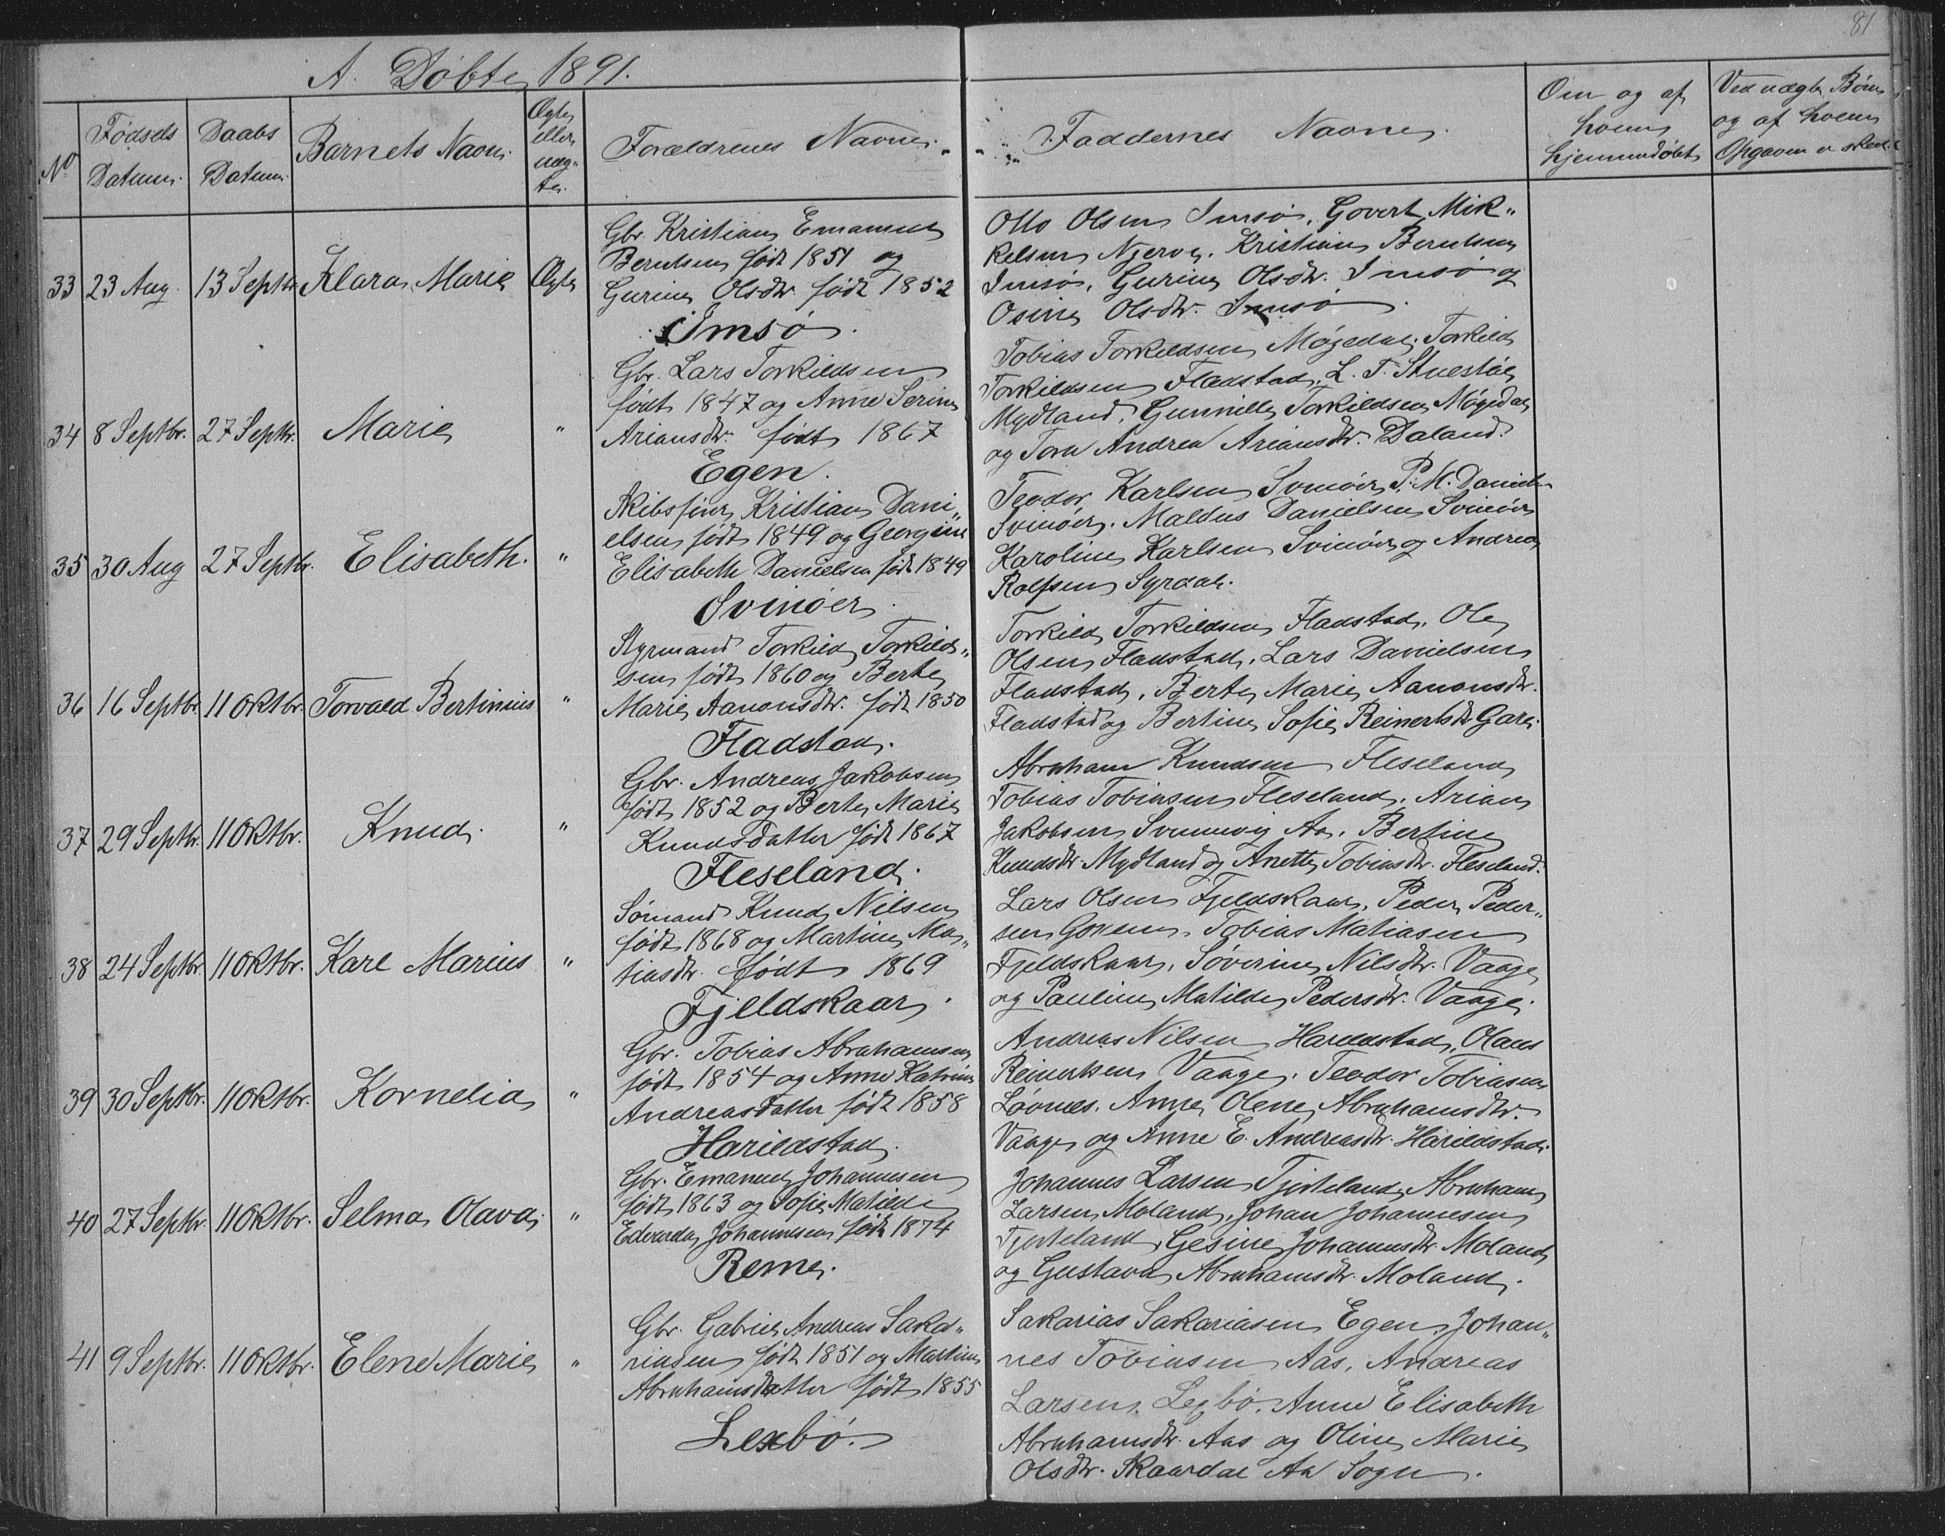 81
A. Døbte 1891.
No
Fødsels Datum.
Daabs Datum.
Barnets Navn.
Ægte eller uæg- te.
Forældrenes Navne.
Faddernes Navne.
Om og af hvem hjemmedøbt
Ved uægte Børn og af hvem Opgaven er skeet
33 23 Aug. 13 Septbr. Klara Marie Ægte
Gbr. Kristian Emanuel
Berntsen født 1851 og
Gurine Olsdtr. født 1852
Imsø.
Otto Olsen Imsø, Govert Mik-
kelsen Njerve, Kristian Berntsen
Imsø, Gurine Olsdtr. Imsø og
Osine Olsdtr. Imsø.
34 8 Septbr. 27 Septbr. Marie "
Gbr. Lars Torkildsen
født 1847 og Anne Serine
Ariansdtr. født 1867
Egen.
Tobias Torkildsen Møgedal, Torkild
Torkildsen Fladstad, L. T. Stuestøl
Mydland, Gunnille Torkildsen Møgedal
og Tora Andrea Ariansdtr. Daland.
35 30 Aug 27 Septbr. Elisabeth. "
Skibsfører Kristian Dani-
elsen født 1849 og Georgine
Elisabeth Danielsen født 1849
Svinøer.
Teodor Karlsen Svinøer, P. M. Danielsen
Svinøer. Maldus Danielsen Svinøer
Karoline Karlsen Svinøer og Andrea
Rolfsen Syrdal.
36 16 Septbr. 11 Oktbr. Torvald Bertinius "
Styrmand Torkild Torkild-
sen født 1860 og Berte
Marie Aanonsdtr. født 1850
Fladstad.
Torkild Torkildsen Fladstad, Ole
Olsen Fladstad, Lars Danielsen
Fladstad, Berte Marie Aanonsdtr.
Fladstad og Bertine Sofie Reinertsdtr Gare.
37 29 Septbr. 11 Oktbr. Knud. "
Gbr. Andreas Jakobsen
født 1852 og Berte Marie
Knudsdatter født 1867
Fleseland.
Abraham Knudsen Fleseland
Tobias Tobiasen Fleseland, Arian
Jakobsen Svennevig Aa, Bertine
Knudsdtr. Mydland og Anette Tobiasdtr. Fleseland.
38 24 Septbr. 11 Oktbr. Karl Marius "
Sømand Knud Nilsen
født 1868 og Martine Ma-
tiasdtr. født 1869
Fjeldskaar.
Lars Olsen Fjeldskaar, Peder Peder-
sen Tobias Matiasen
Fjeldskaar, Søverine Nilsdtr. Vaage
og Pauline Matilde Pedersdtr. Vaage.
39 30 Septbr. 11 Oktbr. Kornelia "
Gbr. Tobias Abrahamsen
født 1854 og Anne Katrine
Andreasdatter født 1858
Harildstad.
Andreas Nilsen Harildstad, Olaus
Reinertsen Vaage, Teodor Tobiasen
Løvnes. Anne Olene Abrahamsdtr.
Vaage og Anne E. Andreasdtr. Harildstad.
40 27 Septbr. 11 Oktbr. Selma Olava. "
Gbr. Emanuel Johannesen
født 1863 og Sofie Matilde
Edvarda Johannesen født 1874
Reme.
Johannes Larsen Tjorteland, Abraham
Larsen Moland, Johan Johannesen
Tjorteland, Gesine Johannesdtr Moland
og Gustava Abrahamsdtr. Moland.
41 9 Septbr. 11 Oktbr. Elene Marie "
Gbr. Gabriel Andreas Saka-
riasen født 1851 og Martine
Abrahamsdatter født 1855
Lexbø.
Sakarias Sakariasen Egen, Johan-
nes Tobiasen Aas, Andreas
Larsen Lexbø, Anne Elisabeth
Abrahamsdtr. Aas og Oline Marie
Olsdtr. Skaardal Aa Sogn.